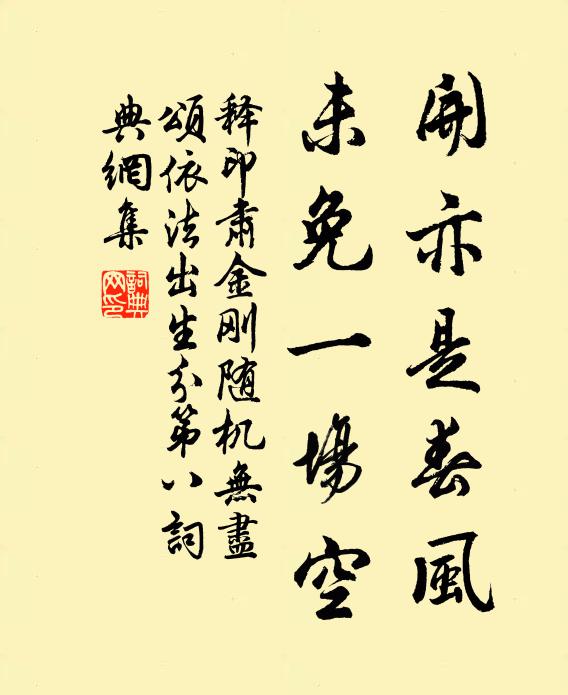 開亦是春風
未免一場空
释印肅金刚随机無盡
頌依法出生分第八詞
典網集
詞典网印